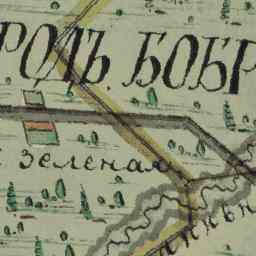 РОДЪ БОБР
зеленая